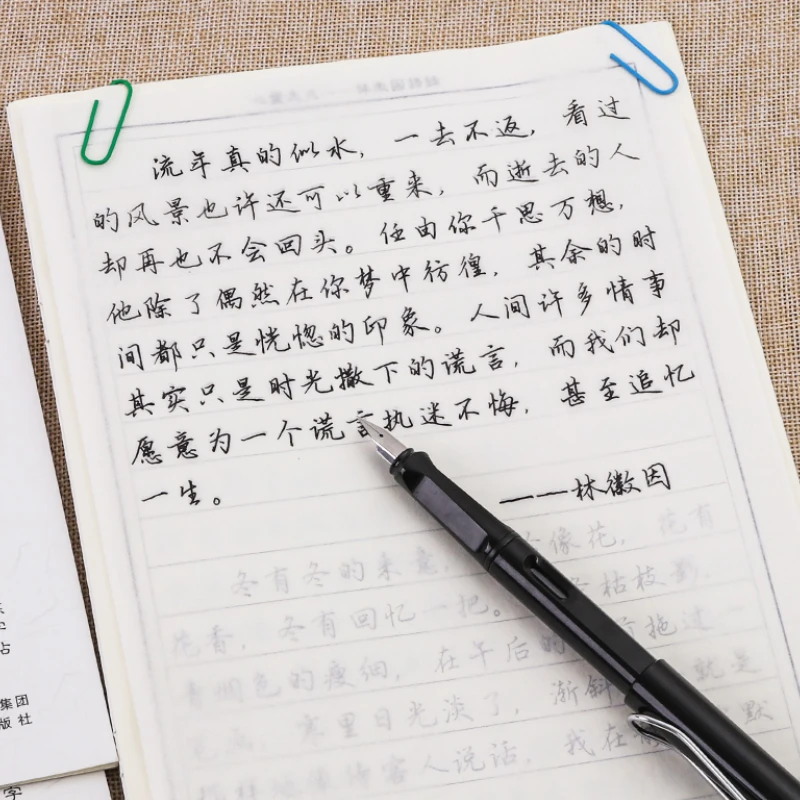 流年真的似水，一去不返，看过
的风景也许还可以重来，而逝去的人
却再也不会回头。任由你千思万想，
他除了偶然在你梦中彷徨，其余的时
间都只是恍惚的印象。人间许多情事
其实只是时光撒下的谎言，而我们却
愿意为一个谎言执迷不悔，甚至追忆
一生。
———林徽因
冬有冬的来意，像花，花有
花香，冬有回忆一把。枯枝影，
色的瘦细，在午后的拖过
寒里日光淡了，渐斜，就是
待客人说话，我在默
集团
版社
字